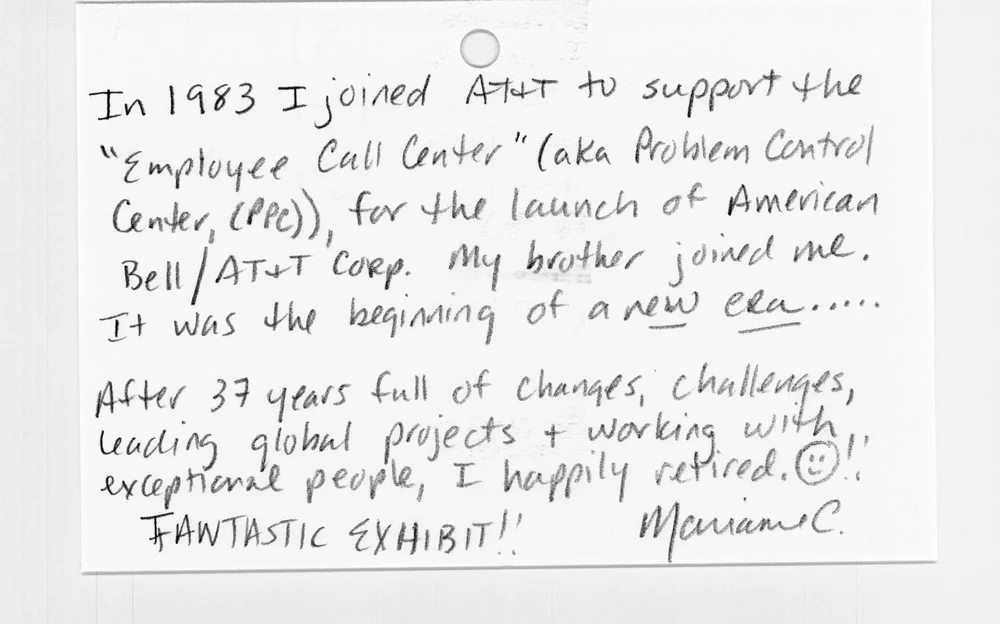 In 1983 I joined AT&T to support the
"Employee Call Center" (aka Problem Control
Center, (PPC)), for the launch of American
Bell/AT&T Corp. My brother joined me.
It was the beginning of a new era.....
After 37 years full of changes, challenges,
leading global projects + working with
exceptional people, I happily retired. ☺!!
FANTASTIC EXHIBIT!! Mariann C.